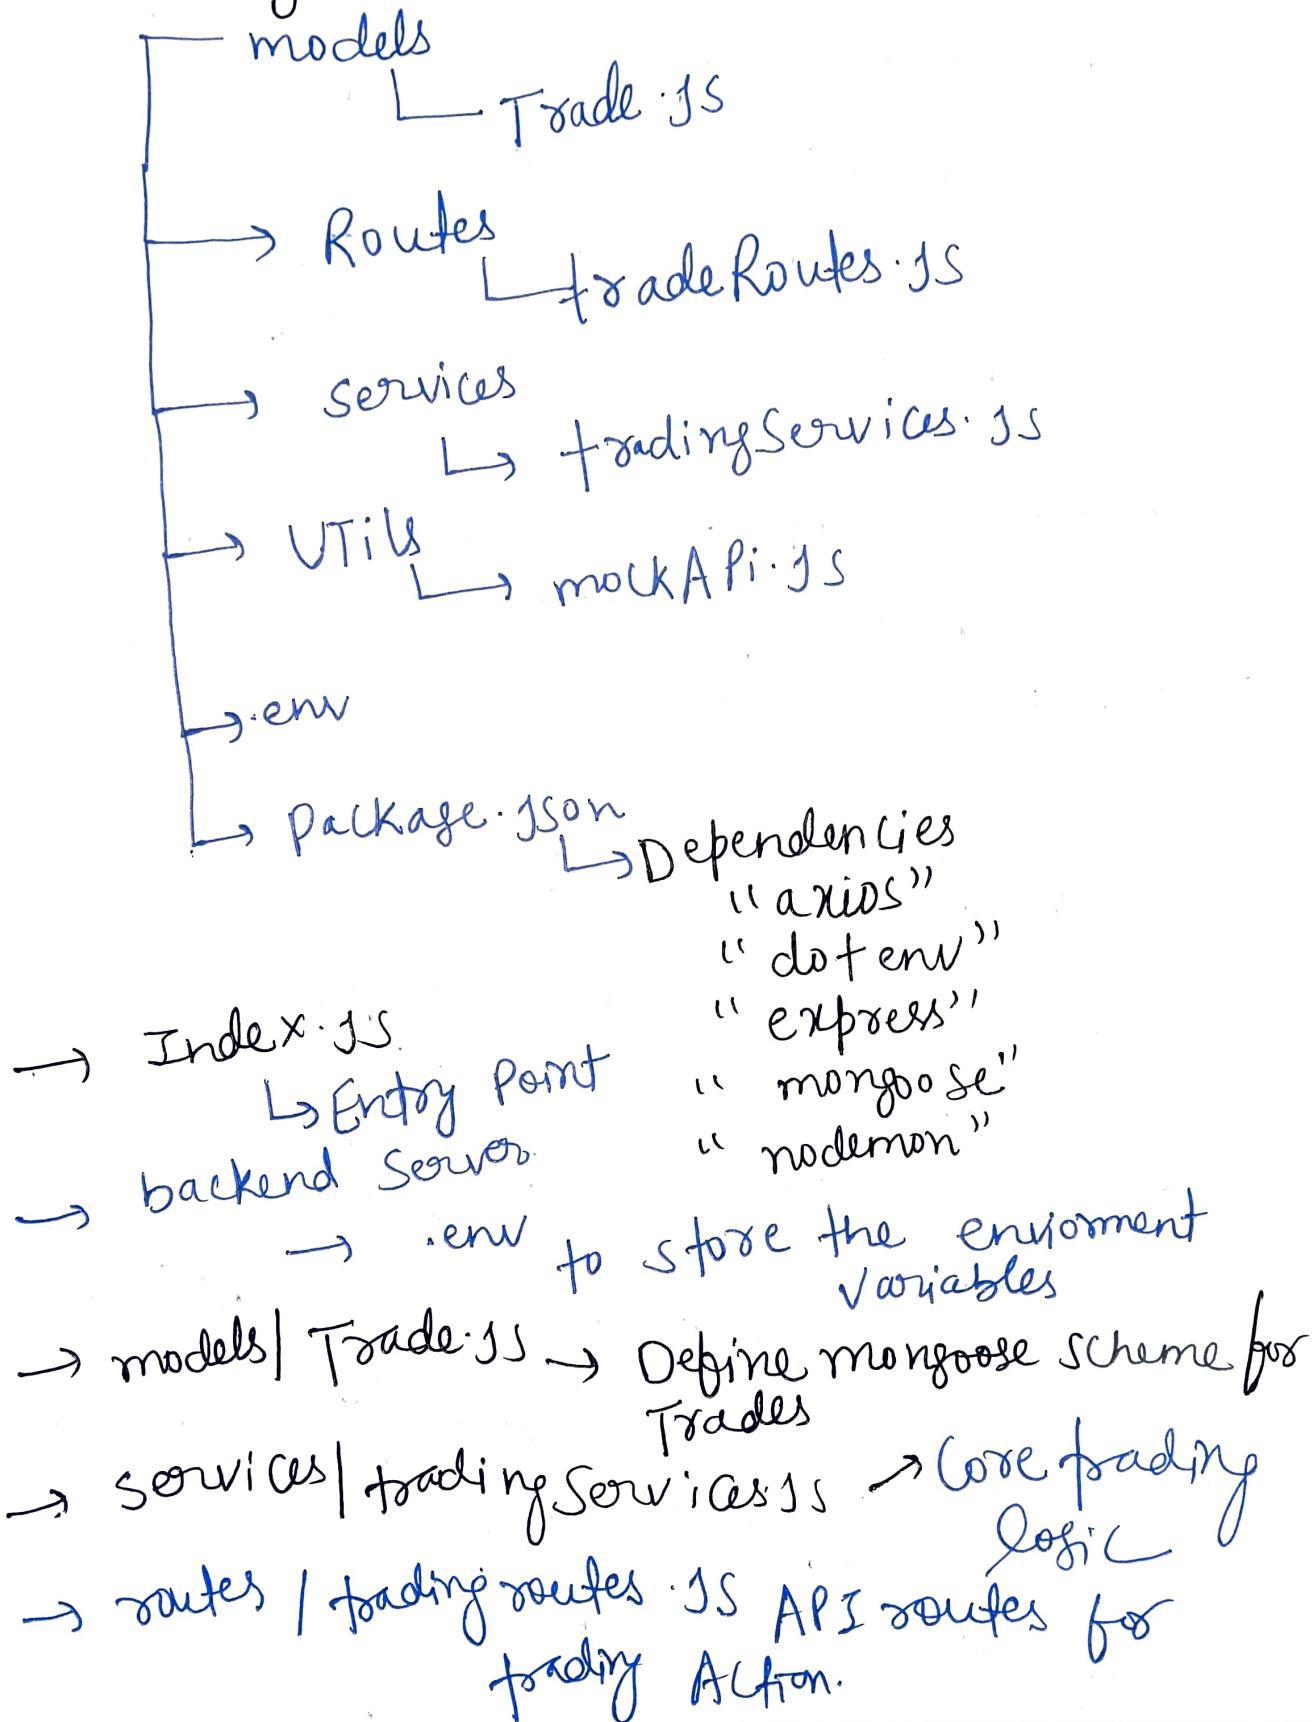 models
Trade.js
Routes
tradeRoutes.js
services
tradingServices.js
UTils
mockAPi.js
.env
package.json
Dependencies
"axios"
"dotenv"
"express"
"mongoose"
"nodemon"
→ Index.js
Entry Point
→ backend Server
→ .env to store the enviorment
variables
→ models/Trade.js → Define mongoose scheme for
Trades
→ services/tradingServices js → Core trading
logic
→ routes / trading routes.js API routes for
trading Action.